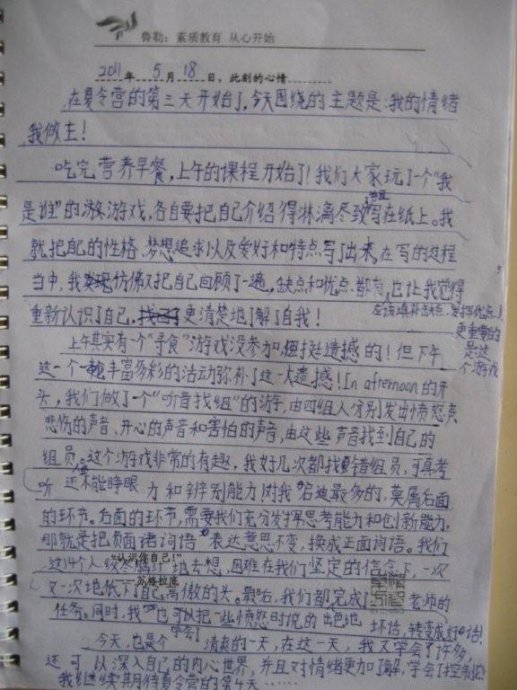 鲁勒：素质教育 从心开始
2011年5月18日，此刻的心情
在夏令营的第三天开始了，今天围绕的主题是：我的情绪
我做主！
吃完营养早餐，上午的课程开始了！我们大家玩了个"我
是谁"的游戏，各自要把自己介绍得淋漓尽致写在纸上。我
就把自己的性格、梦想追求以及爱好和特点写了出来，在写的过程
当中，我仿佛对把自己回顾了一遍，缺点和优点都有，也让我觉得
应该填补缺点，发挥优点！
重新认识了自己，更清楚地了解了自我！
更重要的
是这
个游戏
上午其实有一个"寻食"游戏没参加，挺遗憾的！但下午
这一个丰富多彩的活动弥补了这一大遗憾！In afternoon的开
头，我们做了一个"听音找组"的游，由四组人分别发出愤怒声
悲伤的声音、开心的声音和害怕的声音，由这些声音找到自己的
组员。这个游戏非常的有趣，我好几次都找错组员，可真考
听 还不能睁眼 力和辨别能力！对我启迪最多的，莫属后面
的环节。后面的环节，需要我们充分发挥思考能力和创新能力，
那就是把负面词语 表达意思不变，换成正面词语。我们
"认识你自己！"
这14个人绞尽脑汁地去想，困难在我们坚定的信念下，一次
苏格拉底
又一次地低下了自己高傲的头。最后，我们都完成了老师的
任务。同时，我也可以把一些愤怒时说的 坏话，转变成好话！
学会了
今天，也是个 清爽的一天，在这一天，我又学会了许多，
还可以深入自己的内心世界，并且对情绪更加了解，学会了控制它！
我继续期待夏令营的第四天……